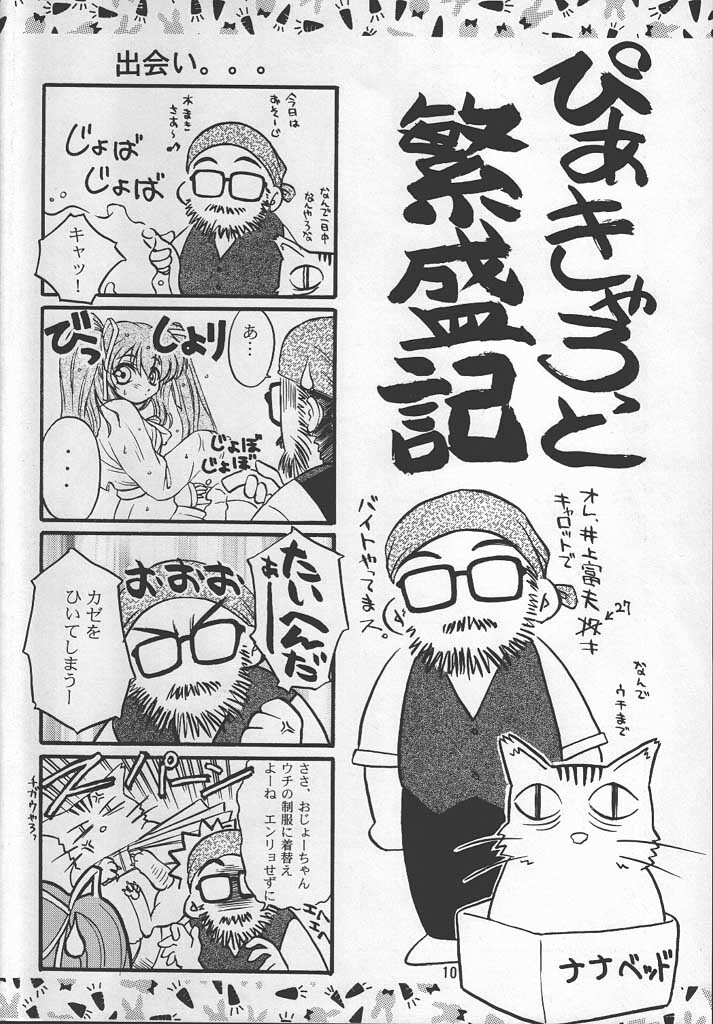 ぴあきゃろっと
繁盛記
オレ、井上富夫 27
キャロットで
バイトやってまス。
なんで
ウチまで
ナナベッド
10
出会い。。。
今日は
おそーじ
水まき
さあ〜♪
じょば
じょば
なんで一日中
なんやろな
キャッ！
あ…
びっ
しょり
じょぼ
じょぼ
・・・
たいへんだ
ぁー
おおおお
カゼを
ひいてしまうー
ささ、おじょーちゃん
ウチの制服に着替え
よーね エンリョせずに
スパーン
チガウやろ？
エヘ
エヘ